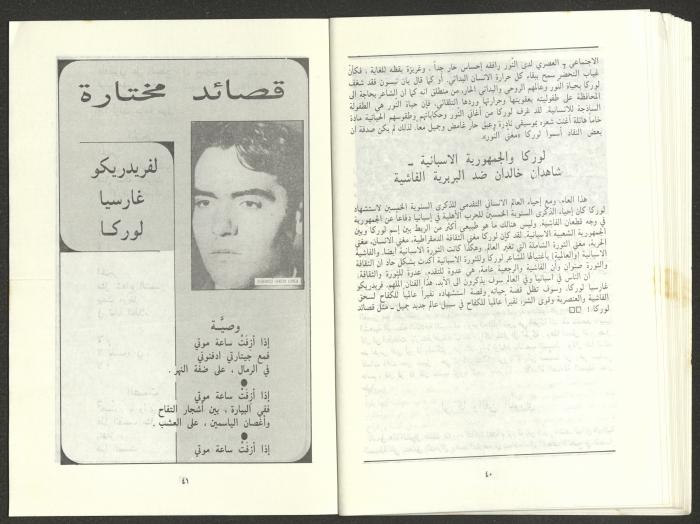 الاجتماعي - العصري لدى النَّوَر رافقه إحساس حار جداً، وغريزة يقظه للغاية، فكأنَّ
غياب التحضّر سمح ببقاء كل حرارة الانسان البدائي. أو كما قال بان تيسون فقد شغف
لوركا بحياة النور وعالمهم الروحي والبدائي الحار، من منطلق انه كما ان الشاعر بحاجة الى
المحافظة على طفوليته بعفويتها وحرارتها وردها التلقائي، فإن حياة النور هي الطفولة
الساذجة للانسانية. لقد غرف لوركا من أغاني النّور وحكاياتهم وطقوسهم الحياتية مادة
خاماً هائلة أغنت شعره بموسيقى نادرة وعبق حار غامض وجميل معاً. لذلك لم يكن صدفة ان
بعض النقاد أسموا لوركا «مغني النَّور».
لوركا والجمهورية الاسبانية -
شاهدان خالدان ضد البربرية الفاشية
هذا العام، ومع إحياء العالم الانساني التقدمي للذكرى السنوية الخمسين لاستشهاد
لوركا كان إحياء الذكرى السنوية الخمسين للحرب الأهلية في إسبانيا دفاعاً عن الجمهورية
في وجه قطعان الفاشية. وليس هنالك ما هو طبيعي أكثر من الربط بين إسم لوركا وبين
الجمهورية الشعبية الاسبانية. لقد كان لوركا مغني الثقافة الدمقراطية، مغني الانسان، مغني
الحرية، مغني الثورة الشاملة التي تغير العالم. وهكذا كانت الثورة الاسبانية أيضاً. والفاشية
الاسبانية (والعالمية) باغتيالها للشاعر لوركا وللثورة الاسبانية أكدت بشكل حاد ان الثقافة
والثورة صنوان وأن الفاشية والرجعية عامة، هي عدوة للتقدم، عدوة للثورة والثقافة.
ان الناس في أسبانيا وفي العالم سوف يذكرون الى الأبد، هذا الفنان الملهم، فريدريكو
غارسيا لوركا. وسوف تظل قصة حياته وقصة استشهاده، نفيراً عالمياً للكفاح لسحق
الفاشية والعنصرية وقوى الشر، نفيراً عالمياً للكفاح في سبيل عالم جديد جميل - مثل قصائد
لوركا!
٤٠
قصائد مختارة
لفريدريكو
غارسيا
لوركا
وصيَّة
إذا أزفَتْ ساعة موتي
فمع جيتارتي ادفنوني
في الرمال ، على ضفة النهر .
إذا أزفَتْ ساعة موتي
ففي البيارة ، بين أشجار التفاح
وأغصان الياسمين ، على العشب .
إذا أزفَتْ ساعة موتي
٤١